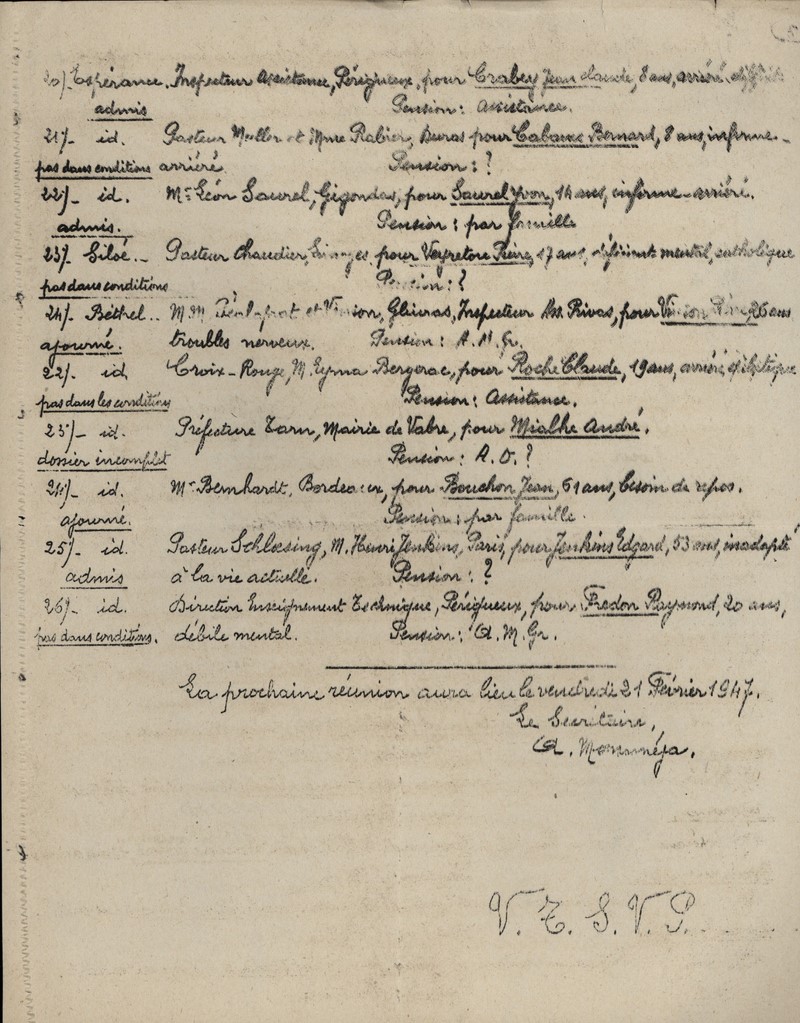 20/- Espérance. Inspecteur Assistance, Périgueux, pour Crabey Jean Claude, 8 ans, arriéré,
admis Pension: Assistance.
21/- id. Pasteur Muller et Mme Rabier, Duras pour Cabanx Bernard, 8 ans, infirme -
pas dans conditions arriéré. Pension : ?
22/- id. Mr Léon Saurel, Gigondas, pour Saurel Yvon, 14 ans, infirme-arriéré.
admis. Pension : par famille
23/- Siloé. - Pasteur Chaudier, Limoges, pour Veyretou 17 ans, déficient mental, catholique
pas dans conditions Pension : ?
24/- Béthel. . M.M. et Vinson, Gluiras, Inspecteur Ass. Privas, pour Vinson 26 ans
ajourné. troubles nerveux. Pension : A.M.Gr.
22/- id. Croix-Rouge, M. Eyma Bergerac, pour Roche Claude, 19 ans, arriéré épileptique
pas dans les conditions Pension : Assistance.
23/- id. Préfecture Tarn, Mairie de Vabre, pour Mialhe André.
dossier incomplet Pension : A.D. ?
24/- id. Mr Bernhardt, Bordeaux, pour Bouchon Jean, 61 ans, besoin de repos.
ajourné. Pension : par famille.
25/- id. Pasteur Schloesing, M. Henri Jenkins, Paris, pour Jenkins Edgard, 53 ans, inadapté
admis à la vie actuelle. Pension : ?
26/- id. Direction Enseignement Technique, Périgueux, pour Fredon Raymond, 20 ans,
pas dans conditions. débile mental. Pension : A.M.Gr.
La prochaine réunion aura lieu le vendredi 21 Février 1947.
Le Secrétaire,
A. Momméja.
V.T.S.V.P.